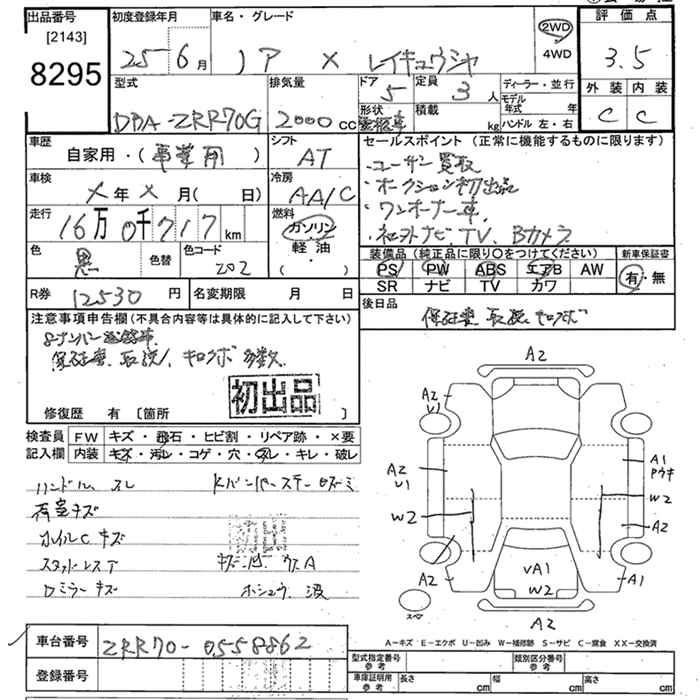 出品番号
[2143]
8295
初度登録年月
25年6月
車名・グレード
ノア X レイキュウシャ
2WD
4WD
評価点
3.5
外装 内装
C C
型式
DBA-ZRR70G
排気量
2000cc
ドア 5
形状
定員 3人
積載 kg
ディーラー・並行
モデル年式 年
ハンドル 左・右
車歴
自家用・(事業用)
シフト
AT
車検
X年X月(日)
冷房
AA/C
走行
16万0千717km
燃料
ガソリン
軽油・
( )
色
黒
色替
色コード
202
R券 12530円
名変期限 月 日
セールスポイント(正常に機能するものに限ります)
・ユーザー買取
・オークション初出品
・ワンオーナー車.
・社外ナビ.TV.Bカメラ
装備品(純正品に限り〇をつけてください)
PS PW ABS エアB AW
SR ナビ TV カワ
新車保証書
有・無
後日品
保証書 取説 キロクボ
注意事項申告欄(不具合内容等は具体的に記入して下さい)
8ナンバー
保証書、取説、キロクボ多数.
初出品
修復歴 有〔箇所 〕
検査員記入欄
FW キズ・飛石・ヒビ割・リペア跡・×要
内装 キズ・汚レ・コゲ・穴・スレ・キレ・破レ
ハンドルスレ
荷室キズ
ホイルCキズ
スタッドレスT
Dミラーキズ
キズ・凹 ウスA
ホシュウ 波
A2
A2
U1
A2
U1
W2
A2
A1
W2
A2
A1
VA1
W2
A2
スペア
A-キズ E-エクボ U-凹み W-補修跡 S-サビ C-腐食 XX-交換済
車台番号 ZRR70-0558862
登録番号
型式指定番号 参考
類別区分番号 参考
車庫証明用 参考
長さ cm 幅 cm 高さ cm